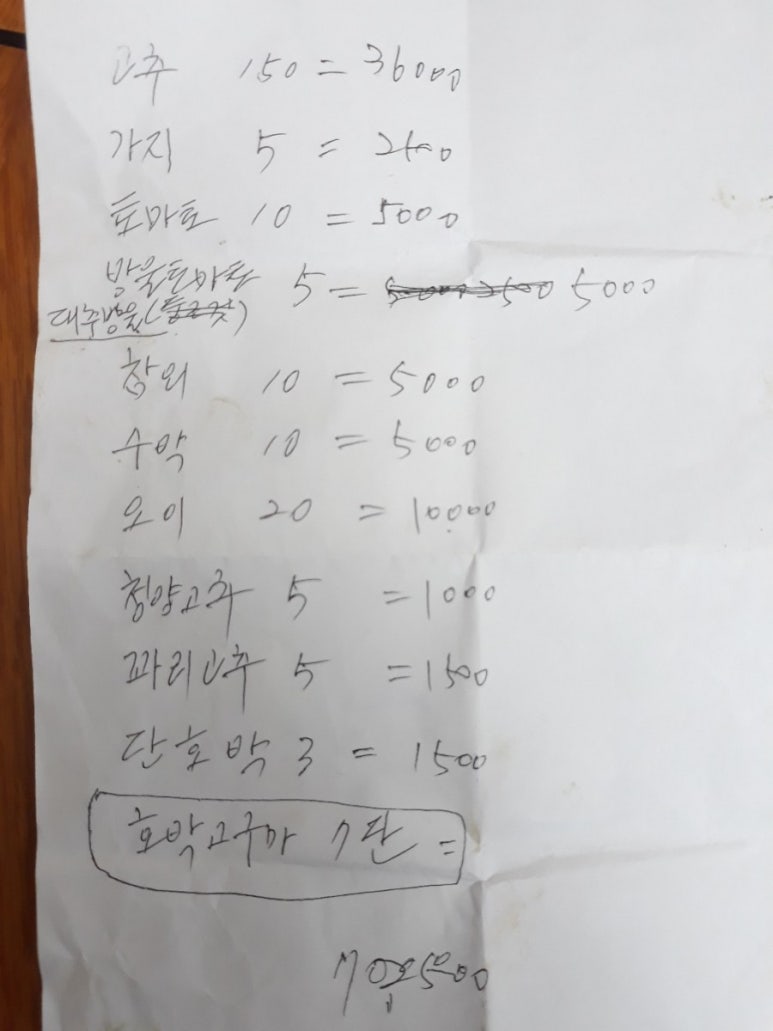 고추 150 = 36000
가지 5 = 2500
토마토 10 = 5000
방울토마토 5 = 5000
대추방울
참외 10 = 5000
수박 10 = 5000
오이 20 = 10000
청양고추 5 = 1000
꽈리고추 5 = 1500
단호박 3 = 1500
호박고구마 7단 =